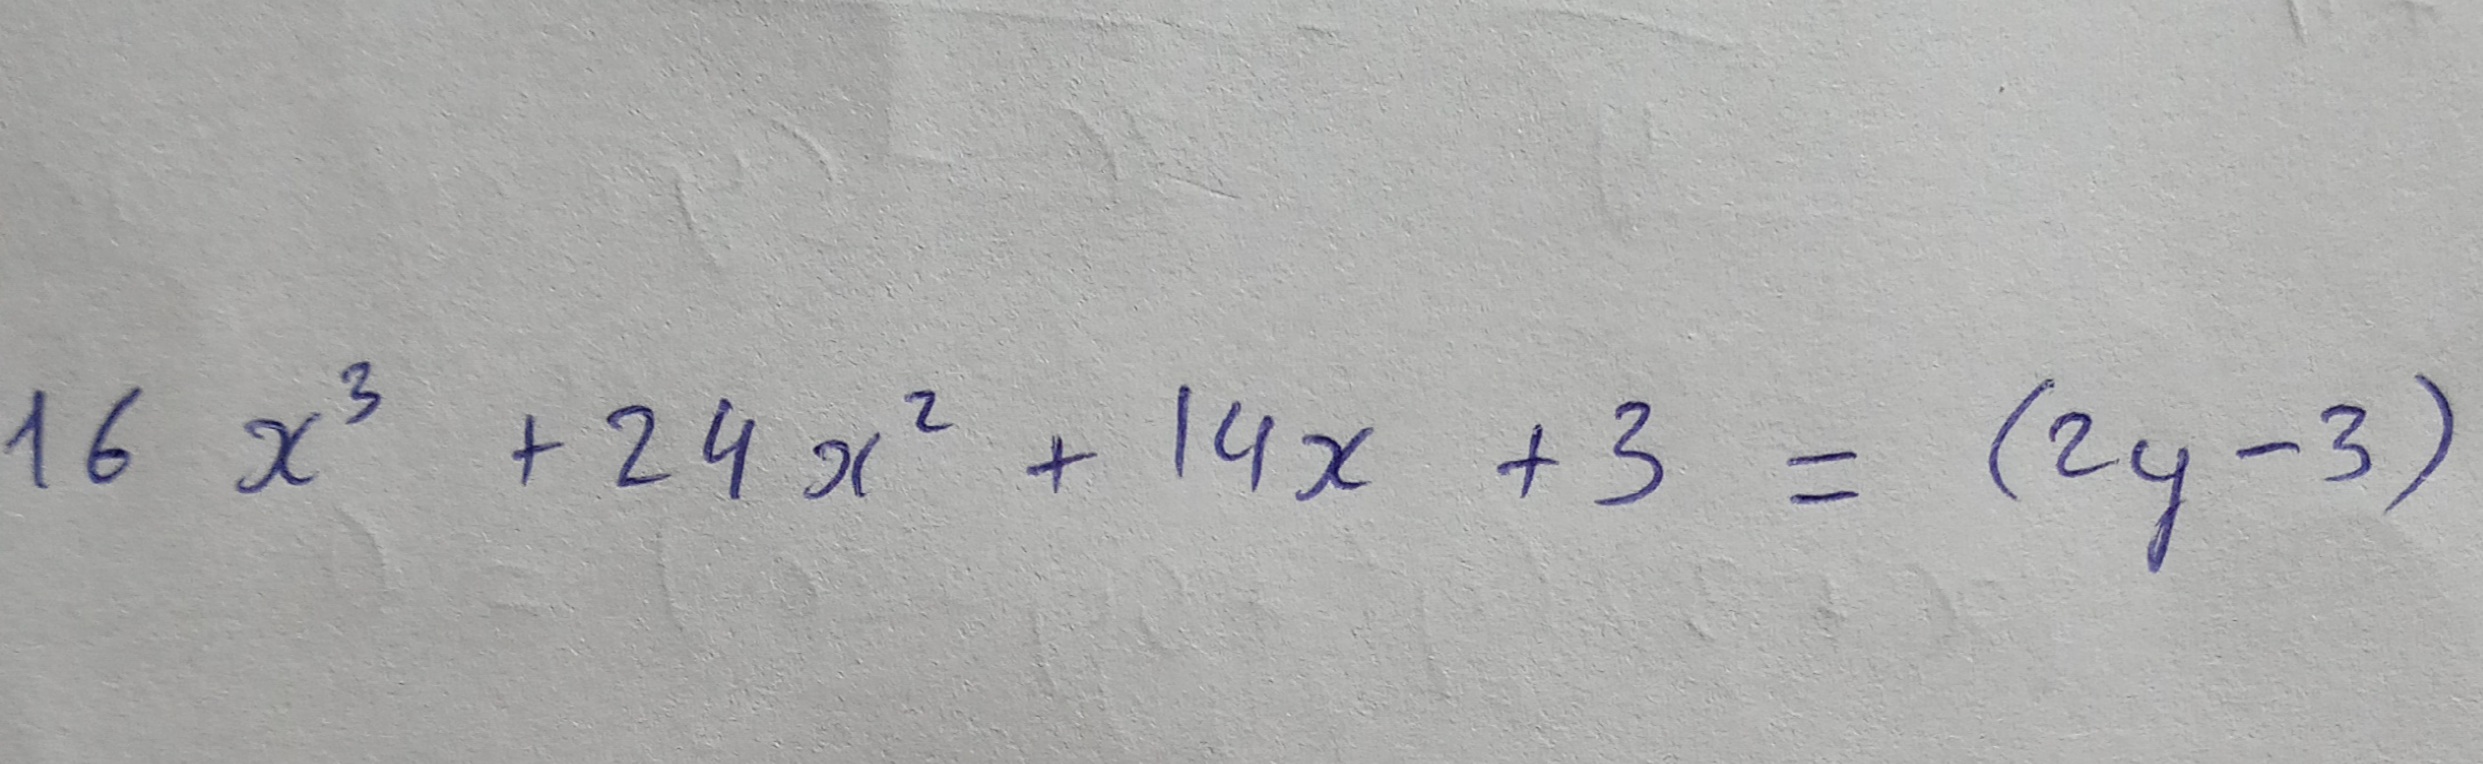 16 x³ + 24x² + 14x + 3 = (2y - 3)